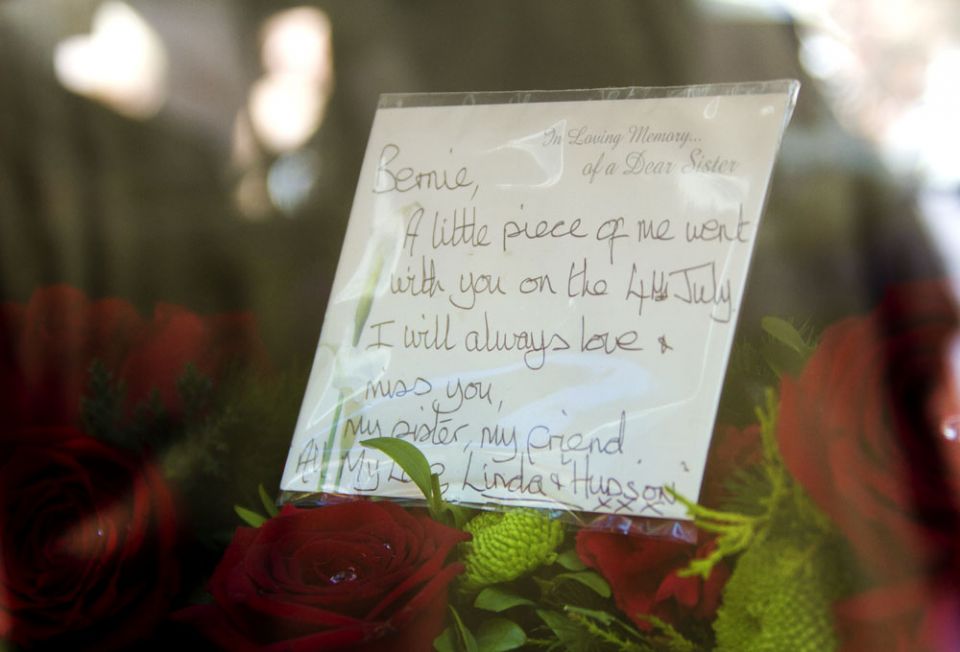 In Loving Memory...
of a Dear Sister
Bernie,
A little piece of me went
with you on the 4th July
I will always love &
miss you,
my sister, my friend
My Linda & Hudson
xxx